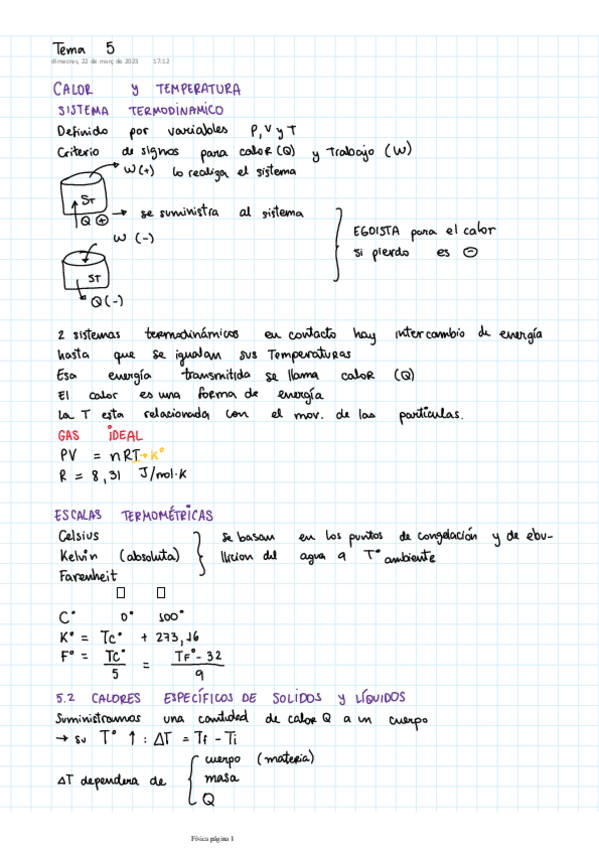 Tema 5
dimecres, 22 de març de 2023 17:12
CALOR y TEMPERATURA
SISTEMA TERMODINAMICO
Definido por variables P, V y T
Criterio de signos para calor (Q) y trabajo (W)
W (+) lo realiza el sistema
ST
Q ⊕ → se suministra al sistema
W (-)
EGOISTA para el calor
si pierdo es ⊖
ST
Q (-)
2 sistemas termodinámicos en contacto hay intercambio de energía
hasta que se igualan sus Temperaturas
Esa energía transmitida se llama calor (Q)
El calor es una forma de energía
La T esta relacionada con el mov. de las particulas.
GAS IDEAL
PV = nRT → K°
R = 8,31 J/mol·K
ESCALAS TERMOMÉTRICAS
Celsius
Kelvin (absoluta)
Farenheit
Se basan en los puntos de congelación y de ebu-
llicion del agua a T° ambiente
C° 0° 100°
K° = Tc° + 273,16
F° = Tc°/5 = TF° - 32/9
5.2 CALORES ESPECÍFICOS DE SOLIDOS y LÍQUIDOS
Suministramos una cantidad de calor Q a un cuerpo
→ su T° ↑ : ΔT = Tf - Ti
ΔT dependera de
cuerpo (materia)
masa
Q
Física página 1